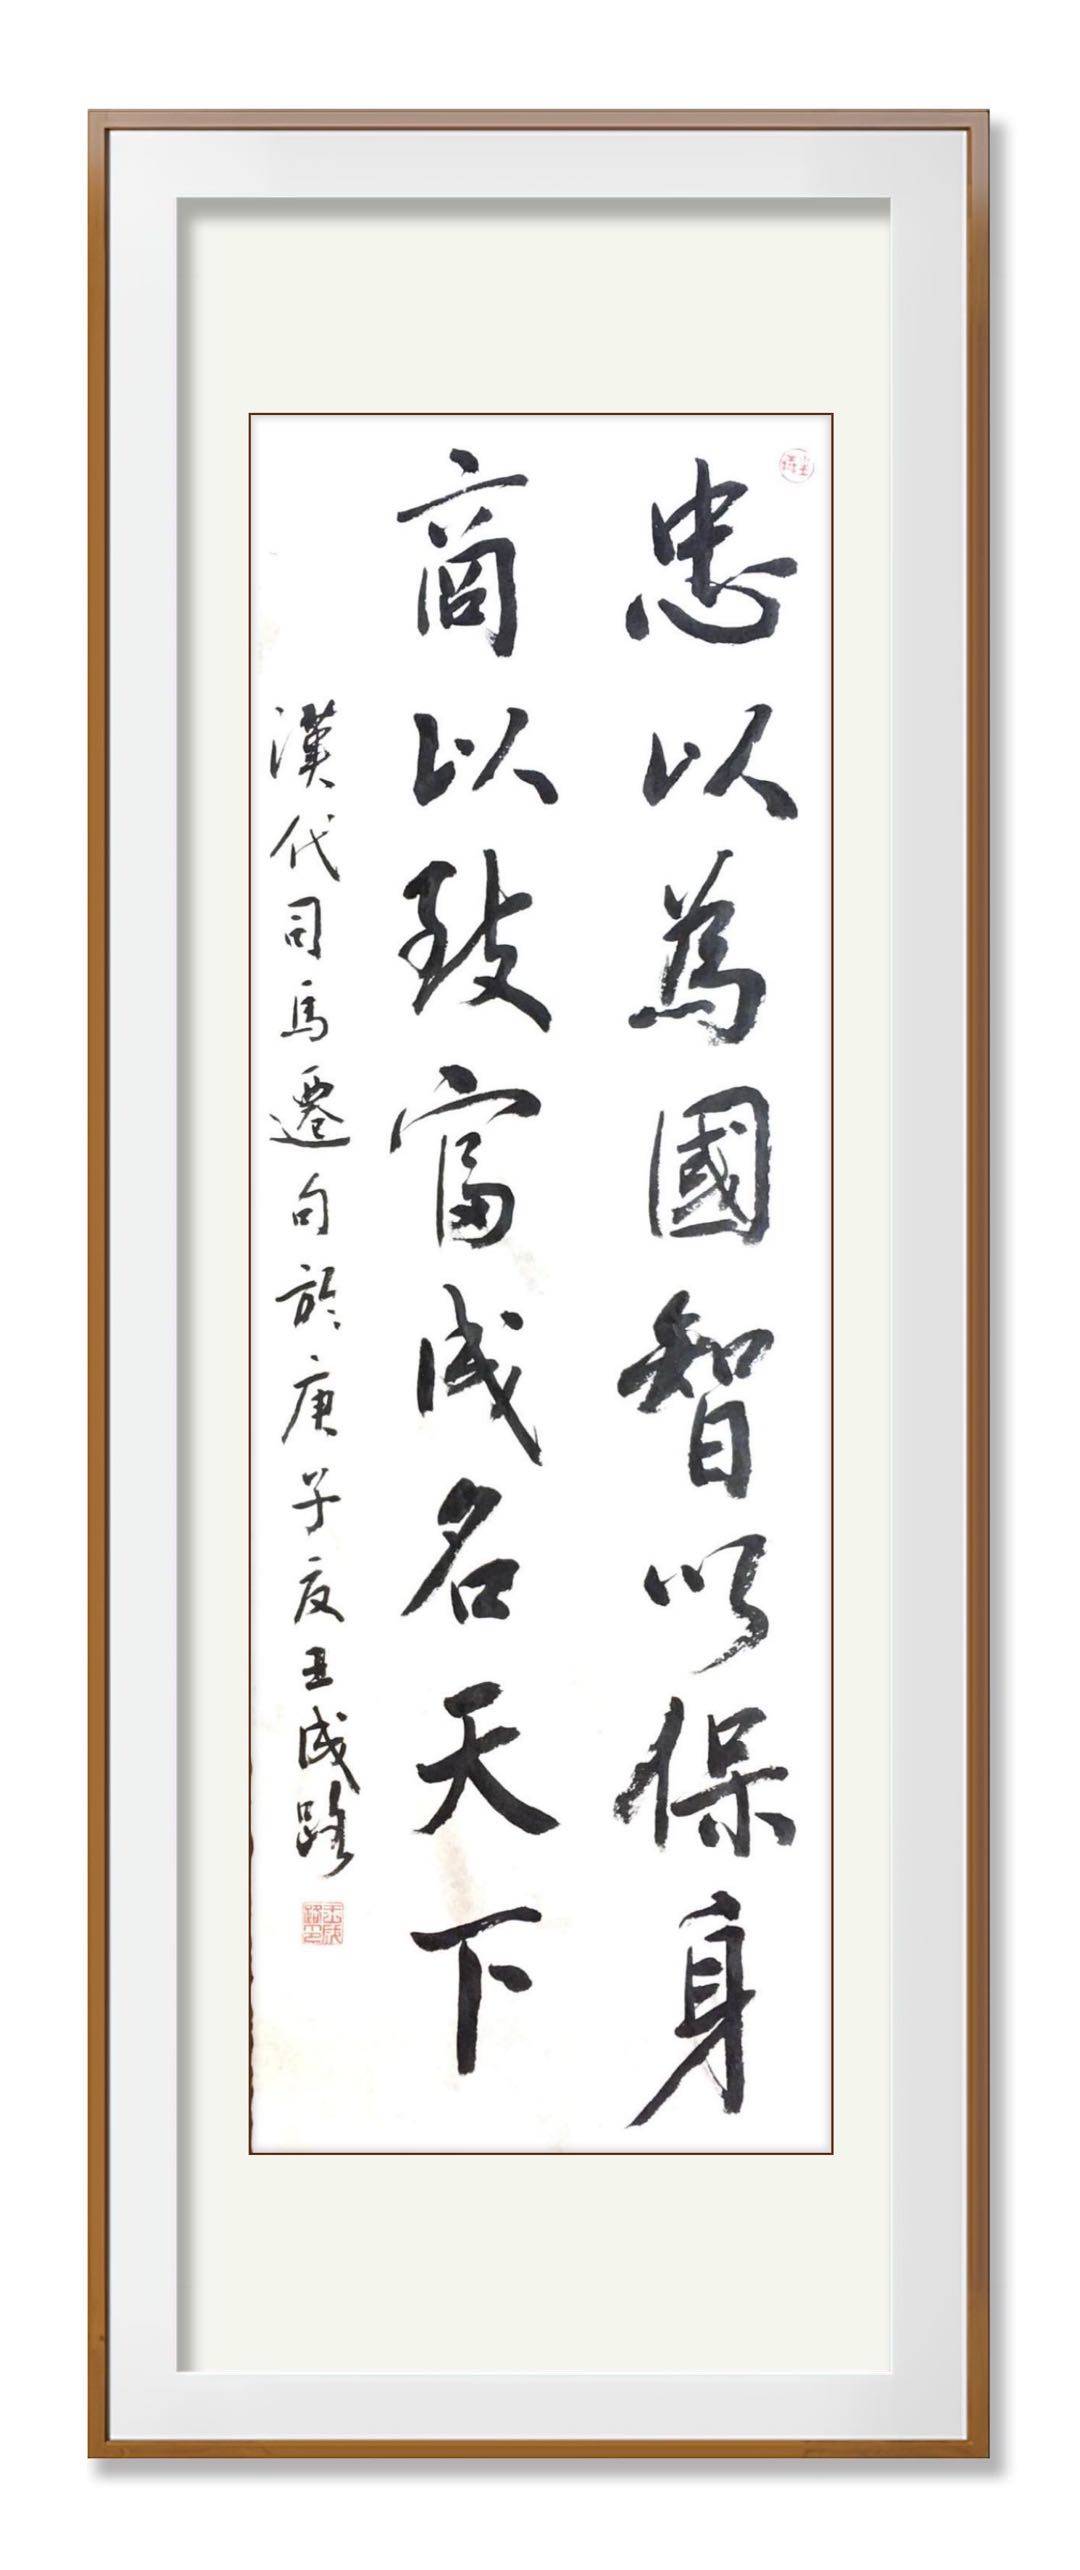 忠以為國智以保身
商以致富成名天下
漢代司馬遷句於庚子夏王成路